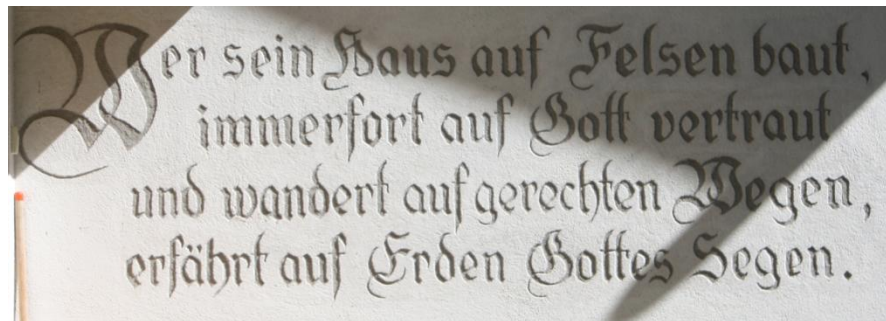 Wer sein Haus auf Felsen baut,
immerfort auf Gott vertraut
und wandert auf gerechten Wegen,
erfährt auf Erden Gottes Segen.